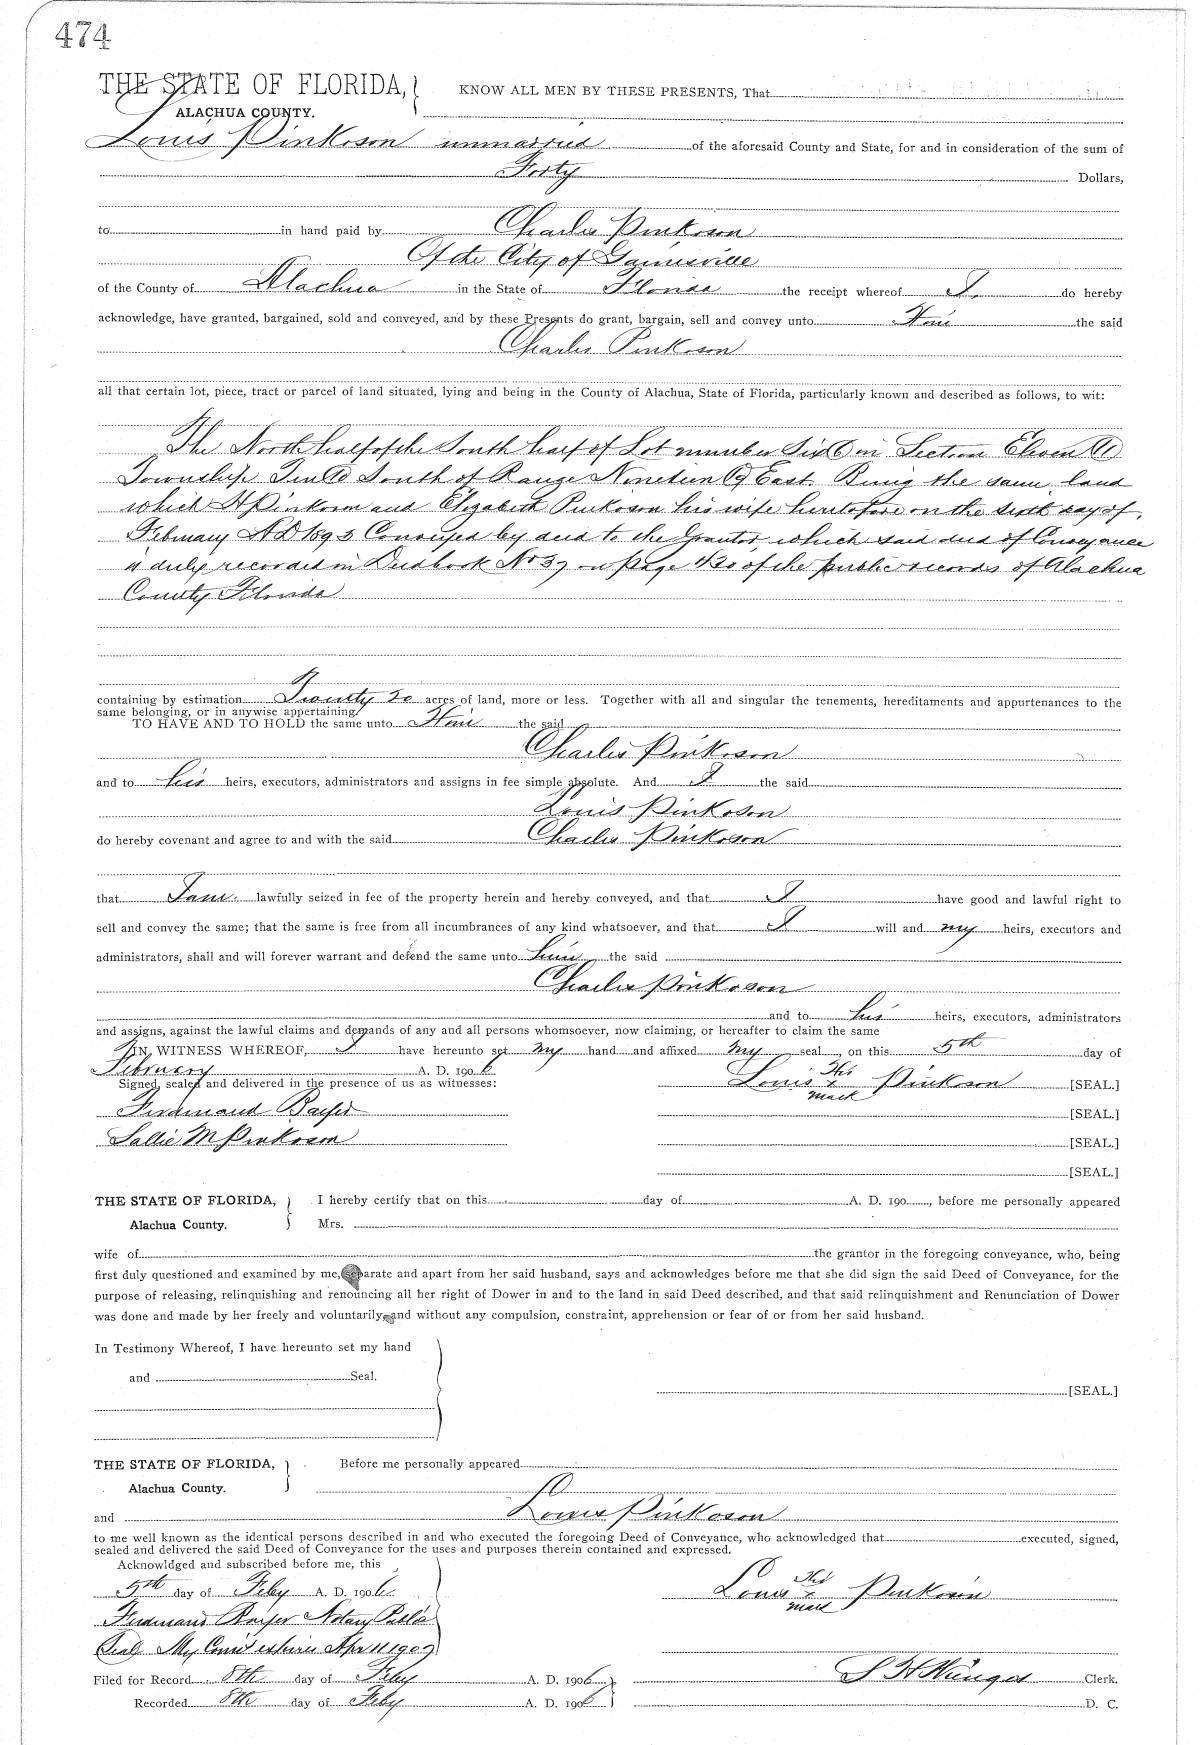 474
THE STATE OF FLORIDA, KNOW ALL MEN BY THESE PRESENTS, That
ALACHUA COUNTY.
Louis Pinkoson unmarried of the aforesaid County and State, for and in consideration of the sum of
Forty Dollars,
to in hand paid by Charles Pinkoson
Of the City of Gainesville
of the County of Alachua in the State of Florida the receipt whereof I do hereby
acknowledge, have granted, bargained, sold and conveyed, and by these Presents do grant, bargain, sell and convey unto Him the said
Charles Pinkoson
all that certain lot, piece, tract or parcel of land situated, lying and being in the County of Alachua, State of Florida, particularly known and described as follows, to wit:
The North half of the South half of Lot number Six 6 in Section Eleven 11
Township Ten 10 South of Range Nineteen 19 East. Being the same land
which H Pinkoson and Elizabeth Pinkoson his wife heretofore on the sixth day of
February AD 1893 Conveyed by deed to the Grantor which said deed of Conveyance
is duly recorded in Deedbook No 37 on page 430 of the public records of Alachua
County Florida
containing by estimation Twenty 20 acres of land, more or less. Together with all and singular the tenements, hereditaments and appurtenances to the
same belonging, or in anywise appertaining.
TO HAVE AND TO HOLD the same unto Him the said
Charles Pinkoson
and to his heirs, executors, administrators and assigns in fee simple absolute. And I the said
Louis Pinkoson
do hereby covenant and agree to and with the said Charles Pinkoson
that I am lawfully seized in fee of the property herein and hereby conveyed, and that I have good and lawful right to
sell and convey the same; that the same is free from all incumbrances of any kind whatsoever, and that I will and my heirs, executors and
administrators, shall and will forever warrant and defend the same unto him the said
Charles Pinkoson
and to his heirs, executors, administrators
and assigns, against the lawful claims and demands of any and all persons whomsoever, now claiming, or hereafter to claim the same
IN WITNESS WHEREOF, I have hereunto set my hand and affixed my seal, on this 5th day of
February A. D. 1906
Signed, sealed and delivered in the presence of us as witnesses: Louis His x mark Pinkoson [SEAL.]
Ferdinand Bayer [SEAL.]
Sallie M Pinkoson [SEAL.]
[SEAL.]
THE STATE OF FLORIDA, I hereby certify that on this day of A. D. 190 , before me personally appeared
Alachua County. Mrs.
wife of the grantor in the foregoing conveyance, who, being
first duly questioned and examined by me, separate and apart from her said husband, says and acknowledges before me that she did sign the said Deed of Conveyance, for the
purpose of releasing, relinquishing and renouncing all her right of Dower in and to the land in said Deed described, and that said relinquishment and Renunciation of Dower
was done and made by her freely and voluntarily and without any compulsion, constraint, apprehension or fear of or from her said husband.
In Testimony Whereof, I have hereunto set my hand
and Seal.
[SEAL.]
THE STATE OF FLORIDA, Before me personally appeared
Alachua County.
and Louis Pinkoson
to me well known as the identical persons described in and who executed the foregoing Deed of Conveyance, who acknowledged that executed, signed,
sealed and delivered the said Deed of Conveyance for the uses and purposes therein contained and expressed.
Acknowldged and subscribed before me, this
5th day of Feby A. D. 1906 Louis His x mark Pinkoson
Ferdinand Bayer Notary Public
Seal My Comis expires Apr 11 1907
Filed for Record 8th day of Feby A. D. 1906 S H Wienges Clerk.
Recorded 8th day of Feby A. D. 1906 D. C.